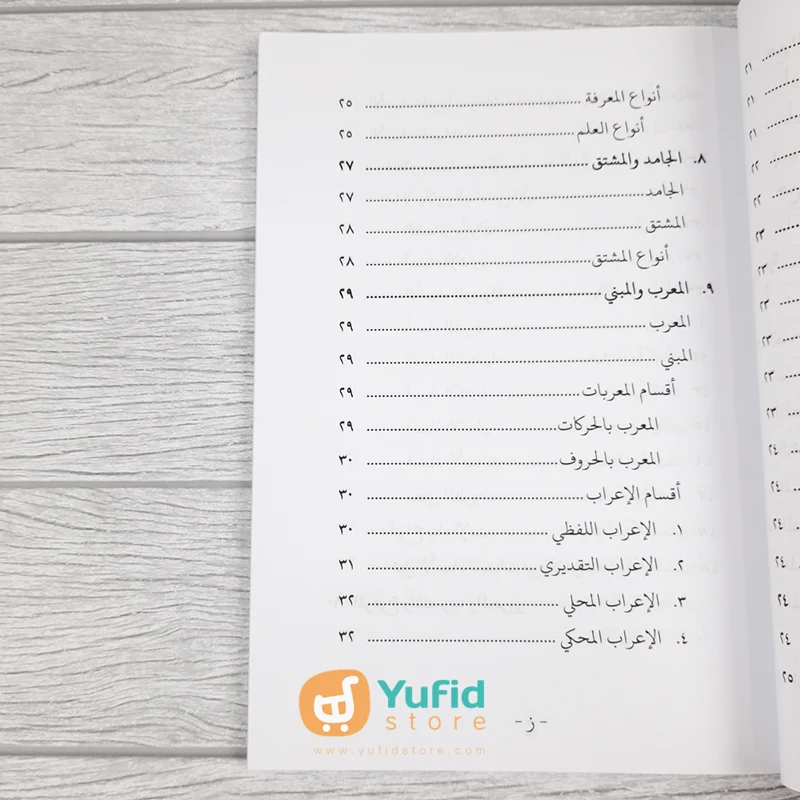 أنواع المعرفة ........ ٢٥
أنواع العلم ........ ٢٥
٨. الجامد والمشتق ........ ٢٧
الجامد ........ ٢٧
المشتق ........ ٢٨
أنواع المشتق ........ ٢٨
٩. المعرب والمبني ........ ٢٩
المعرب ........ ٢٩
المبني ........ ٢٩
أقسام المعربات ........ ٢٩
المعرب بالحركات ........ ٢٩
المعرب بالحروف ........ ٣٠
أقسام الإعراب ........ ٣٠
١. الإعراب اللفظي ........ ٣٠
٢. الإعراب التقديري ........ ٣١
٣. الإعراب المحلي ........ ٣٢
٤. الإعراب المحكي ........ ٣٢
- ز -
Yufid
store
www.yufidstore.com
٢١
٢١
٢١
٢٢
٢٢
٢٣
٢٣
٢٣
٢٣
٢٣
٢٣
٢٤
٢٤
٢٤
٢٤
٢٤
٢٤
٢٥